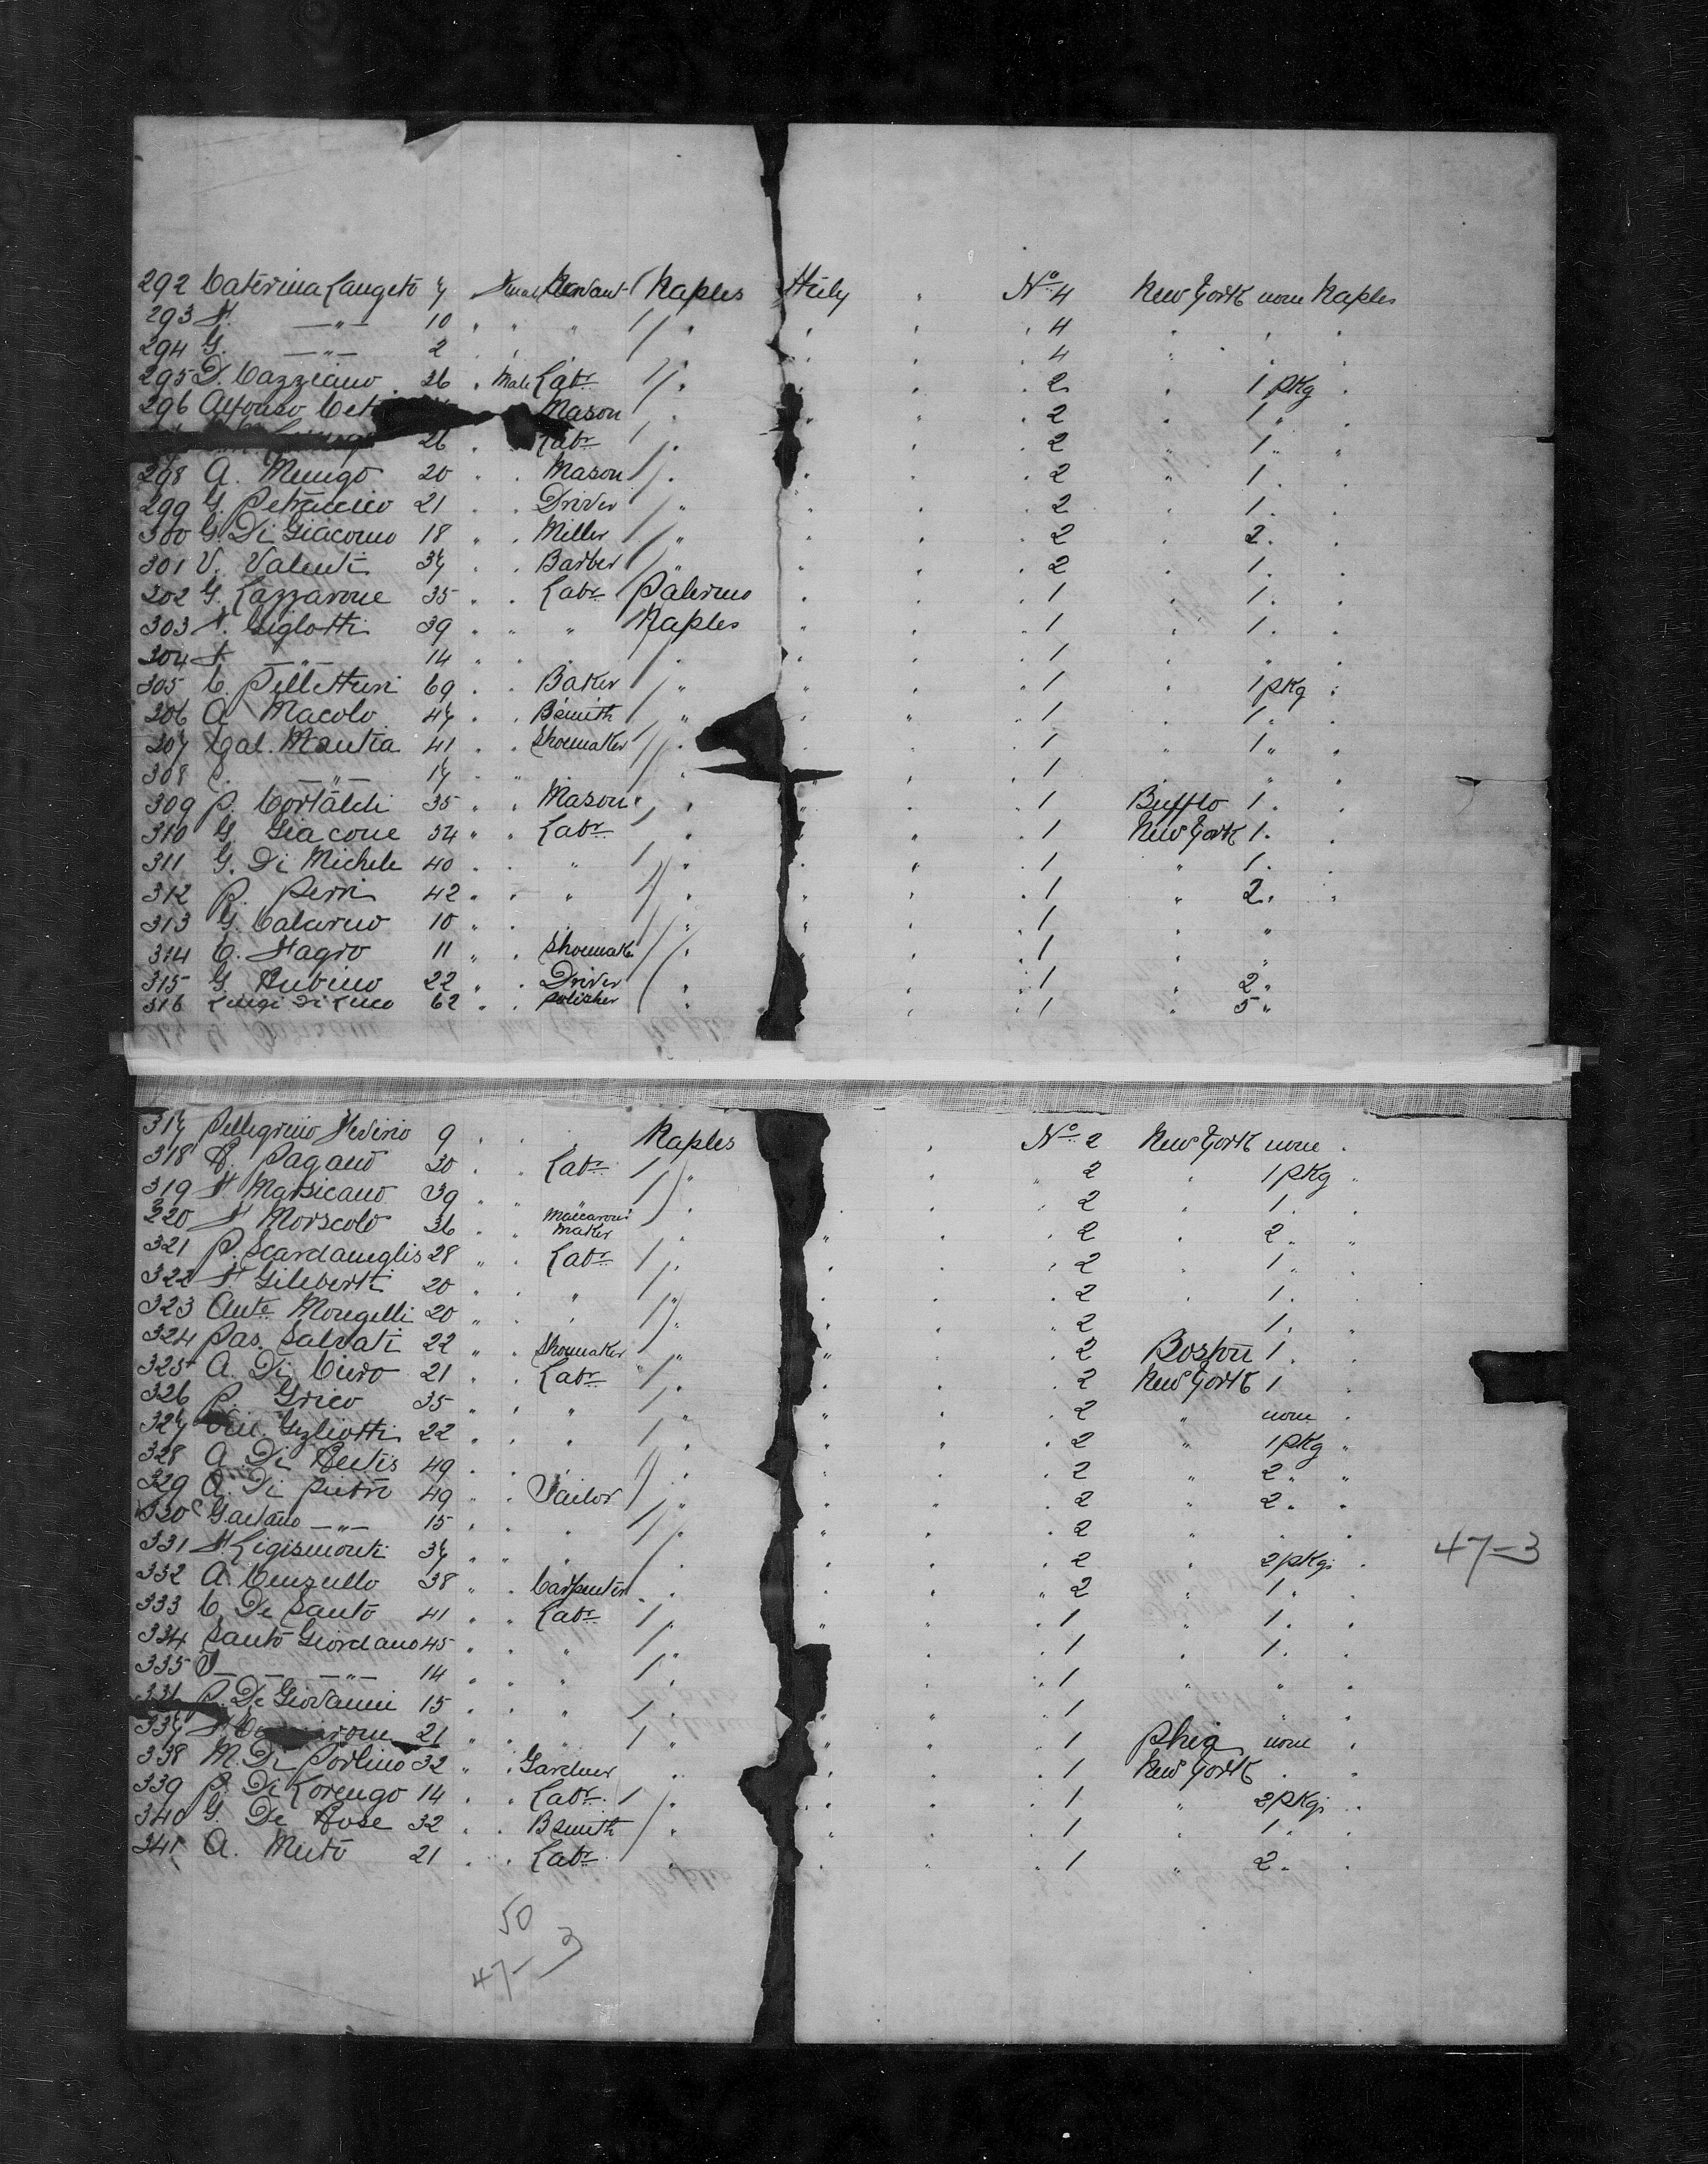 292 Caterina Langeto 7 " Female Servant / Naples Italy " No. 4 New York none Naples
293 F. —"— 10 " " " // " " " " 4 " " "
294 G. —"— 2 " " " " " 4 " " "
295 D. Cazziano 26 " Male Labr // " " " " 2 " 1 pkg "
296 Alfonso Mason / " " " 2 " 1 " "
26 " Labr / " " " 2 " 1 " "
298 A. Mungo 20 " " Mason / " " " " 2 " 1 " "
299 G. Petruccio 21 " " Driver / " " " " 2 " 1 " "
300 G. Di Giacomo 18 " " Miller / " " " " 2 " 2 " "
301 V. Valenti 37 " " Barber / " " " " 2 " 1 " "
302 G. Lazzarone 35 " " Labr / Palermo " " " 1 " 1 " "
303 F. Giglotti 39 " " " Naples " " " 1 " 1 " "
304 F —"— 14 " " " / " " " " 1 " " "
305 C. Pellettieri 69 " " Baker / " " " " 1 " 1 pkg "
306 A. Macolo 47 " " Bsmith / " " " " 1 " 1 " "
307 Cal. Mantia 41 " " Shoemaker // " " " " 1 " 1 " "
308 C. —"— 17 " " // " " " " 1 " " "
309 P. Cortaldi 35 " " Mason " / " " " " 1 Bufflo 1 " "
310 G. Giacone 34 " " Labr " " " " 1 New York 1 " "
311 G. Di Michele 40 " " " / / " " " " 1 " 1 " "
312 P. Perri 42 " " " // " " " " 1 " 2 " "
313 G. Calarno 10 " " " // " " " " 1 " "
314 C. Fagro 11 " " Shoemak // " " " " 1 " "
315 G. Rubino 22 " " Driver / " " " " 1 " 2 "
316 Luigi Di Luco 62 " " polisher / " " " " 1 " 5 "
317 Pellegrino 9 " " " Naples " No. 2 New York none "
318 R. Pagano 30 " " Labr / / " " " 2 " 1 pkg "
319 F. Marsicano 39 " " / / " " " 2 " 1 " "
320 F. Morscolo 36 " " Maccaroni Maker " " " " 2 " 2 " "
321 P. Scardameglis 28 " " Labr / / " " " " 2 " 1 " "
322 F. Giliberti 20 " " " / / " " " " 2 " 1 " "
323 Anto Mongelli 20 " " " / / " " " " 2 " 1 " "
324 Pas. Salvati 22 " " Shoemaker / " " " " 2 Boston 1 " "
325 A. Di Ciero 21 " " Labr " / " " " " 2 New York 1 "
326 P. Grico 35 " " " / " " " " 2 " none "
327 Vin. Gigliotti 22 " " " / / " " " " 2 " 1 pkg "
328 A. Di 49 " " " / / " " " " 2 " 2 " "
329 A. Di Pietro 49 " " Tailor / / " " " " 2 " 2 " "
330 Gaetano —"— 15 " " " / / " " " " 2 " " "
331 F. Ligismonti 37 " " " / " " " " 2 " 2 pkgs " 47-3
332 A. Cuzullo 38 " " Carpenter " " " " 2 " 1 " "
333 C. De Santo 41 " " Labr / / " " " " 1 " 1 " "
334 Santo Giordano 45 " " " / / " " " " 1 " 1 " "
335 —"— 14 " " " / / " " " " 1 " " "
336 P. De Giovanni 15 " " " / / " " " " 1 " " "
337 21 " " " / " " " " 1 Phia none "
338 M. Di Porlino 32 " " Gardner " " " " 1 New York " "
339 P. Di Lorengo 14 " " Labr / / " " " " 1 " 2 pkgs "
340 G. De Rose 32 " " B smith / " " " " 1 " 1 " "
341 A. Muto 21 " " Labr / " " " " 1 " 2 " "
50
47-3